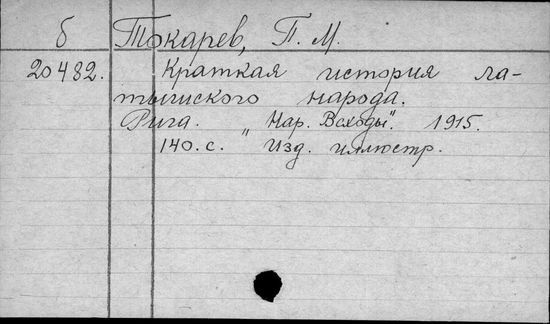 б Токарев, П. М.
20482. Краткая история ла-
тышского народа.
Рига. „Нар. Всходы". 1915.
140. с. Изд. иллюстр.